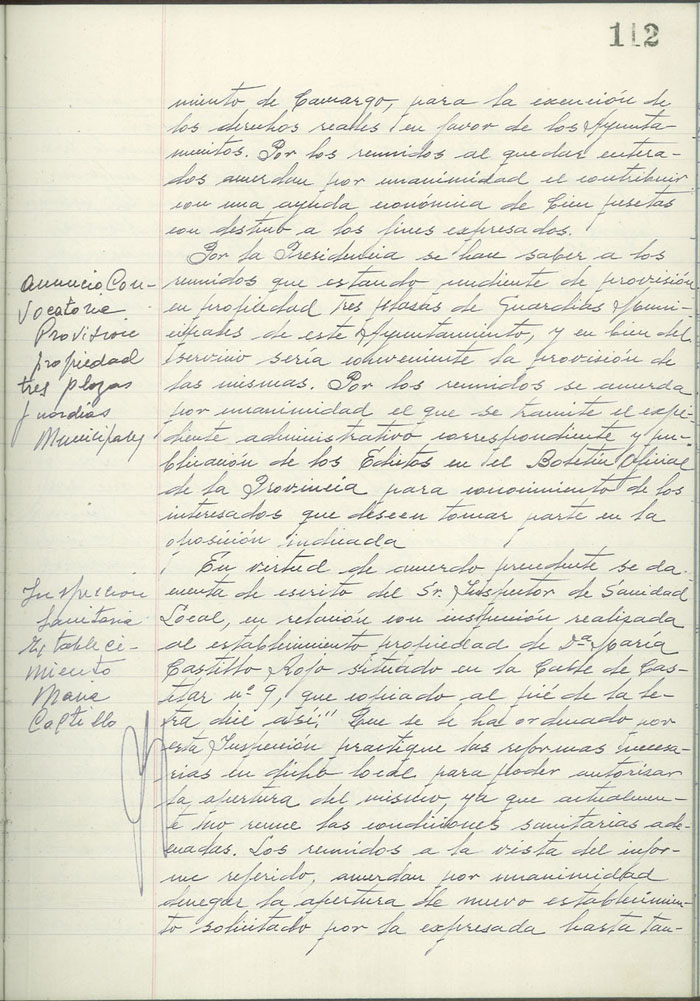 112
miento de Camargo, para la exención de
los derechos reales en favor de los Ayunta-
mientos. Por los reunidos al quedar entera-
dos acuerdan por unanimidad el contribuir
con una ayuda económica de Cien pesetas
con destino a los fines expresados.
Anuncio Con-
vocatoria
Provision
propiedad
tres plazas
guardias
Municipales
Por la Presidencia se hace saber a los
reunidos que estando pendiente de provisión
en propiedad tres plazas de Guardias Muni-
cipales de este Ayuntamiento, y en bien del
servicio sería conveniente la provisión de
las mismas. Por los reunidos se acuerda
por unanimidad el que se tramite el expe-
diente administrativo correspondiente y pu-
blicación de los Edictos en el Boletín Oficial
de la Provincia para conocimiento de los
interesados que deseen tomar parte en la
oposición indicada
Inspeccion
Sanitaria
Estableci-
miento
Maria
Castillo
En virtud de acuerdo precedente se da
cuenta de escrito del Sr. Inspector de Sanidad
Local, en relación con inspección realizada
al establecimiento propiedad de Dª María
Castillo Rojo situado en la Calle de Cas-
telar nº 9, que copiado al pié de la le-
tra dice así:" Que se le ha ordenado por
esta Inspección practique las reformas necesa-
rias en dicho local para poder autorizar
la apertura del mismo, ya que actualmen-
te no reune las condiciones sanitarias ade-
cuadas. Los reunidos a la vista del infor-
me referido, acuerdan por unanimidad
denegar la apertura de nuevo establecimien-
to solicitado por la expresada hasta tan-